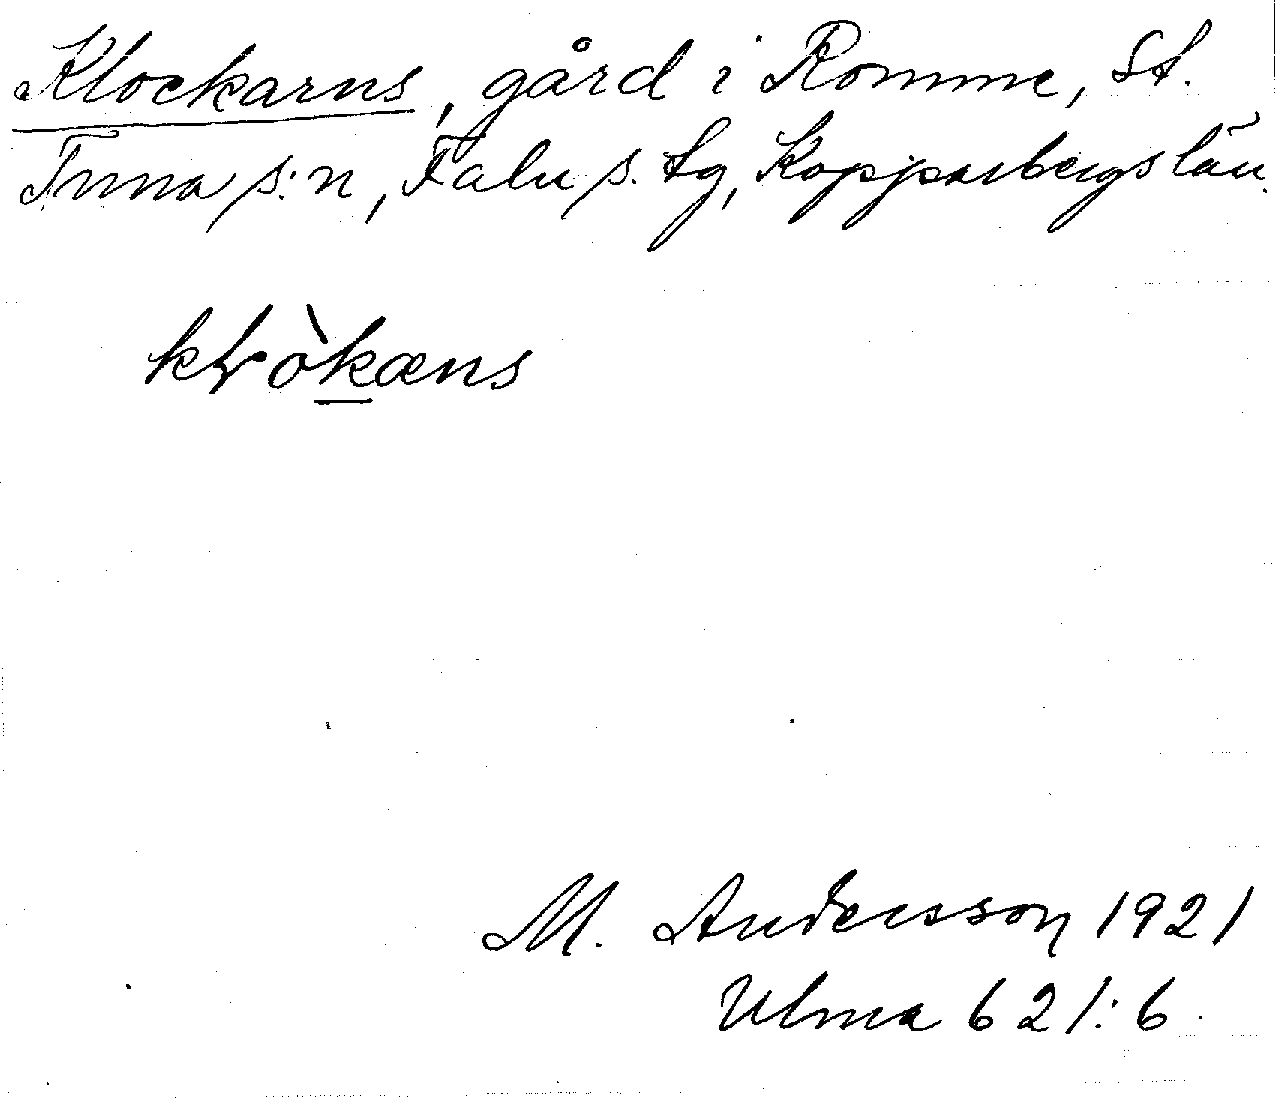 Klockarns, gård i Romme, St.
Tuna s:n, Falu s. tg, Kopparbergs län.
M. Andersson 1921
Ulma 621:6.